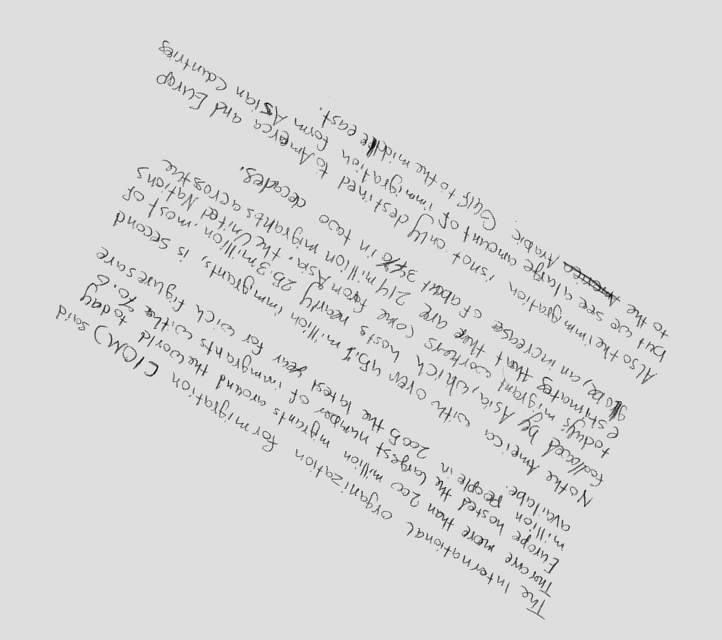 The International organization for migration CIOM) said
Thereare more than 200 million migrants around the world today
Europe hosted the largest number of immigrants with the 70.6
million people in 2005 the latest year for wich figures are
availabe.
Nothe America with over 45.1 million immigrants, is second
foollowed by Asia, which hosts nearly 25.3 million. most of
today's migrant workers come from Asia. the United Nations
estimates that ther are 214 million migrants across the
globe, an increase of about 37% in two decades.
Also the immigration isnot only destined to America and Europ
but we see a large amount of immigration form Asian Countries
to the Arabic Gulf to the middle east.